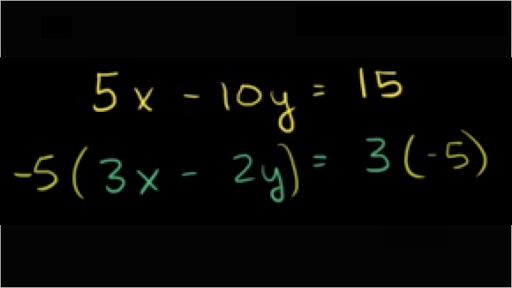 5x - 10y = 15
-5(3x - 2y) = 3(-5)